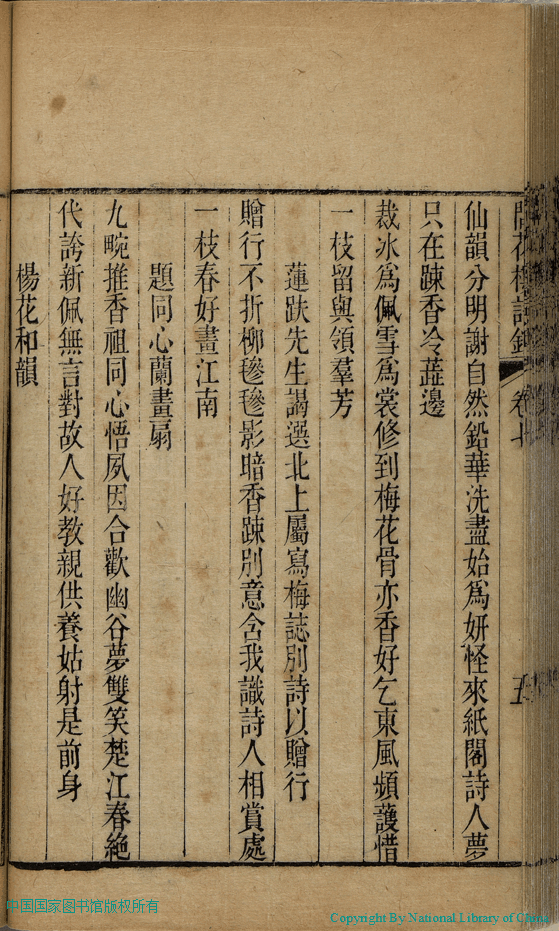 仙韻分明謝自然鉛華洗盡始爲妍怪來紙閣詩人夢
只在踈香冷蘂邊
裁冰爲佩雪爲裳修到梅花骨亦香好乞東風頻護惜
一枝留與領羣芳
蓮趺先生謁選北上屬寫梅誌別詩以贈行
贈行不折柳毿毿影暗香踈別意含我識詩人相賞處
一枝春好畫江南
題同心蘭畫扇
九畹推香祖同心悟夙因合歡幽谷夢雙笑楚江春絶
代誇新佩無言對故人好教親供養姑射是前身
楊花和韻
中国国家图书馆版权所有
Copyright By National Library of China